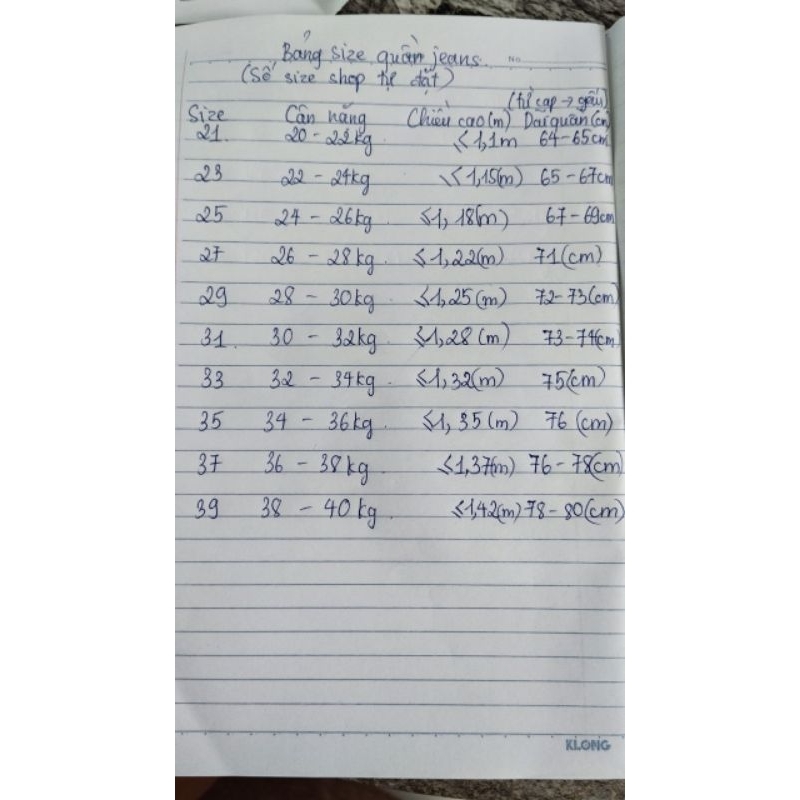 Bảng size quần jeans.
No.
(Số size shop tự đặt)
(từ cạp → gấu)
Size Cân nặng Chiều cao(m) Dài quần(cm)
21. 20 - 22kg ≤1,1m 64-65cm
23 22 - 24kg ≤1,15(m) 65-67cm
25 24 - 26kg ≤1,18(m) 67-69cm
27 26 - 28kg ≤1,22(m) 71(cm)
29 28 - 30kg ≤1,25(m) 72-73(cm)
31. 30 - 32kg ≤1,28(m) 73-74(cm
33 32 - 34kg ≤1,32(m) 75(cm)
35 34 - 36kg ≤1,35(m) 76 (cm)
37 36 - 38kg ≤1,37(m) 76-78(cm)
39 38 - 40kg. ≤1,42(m) 78-80(cm)
KLONG